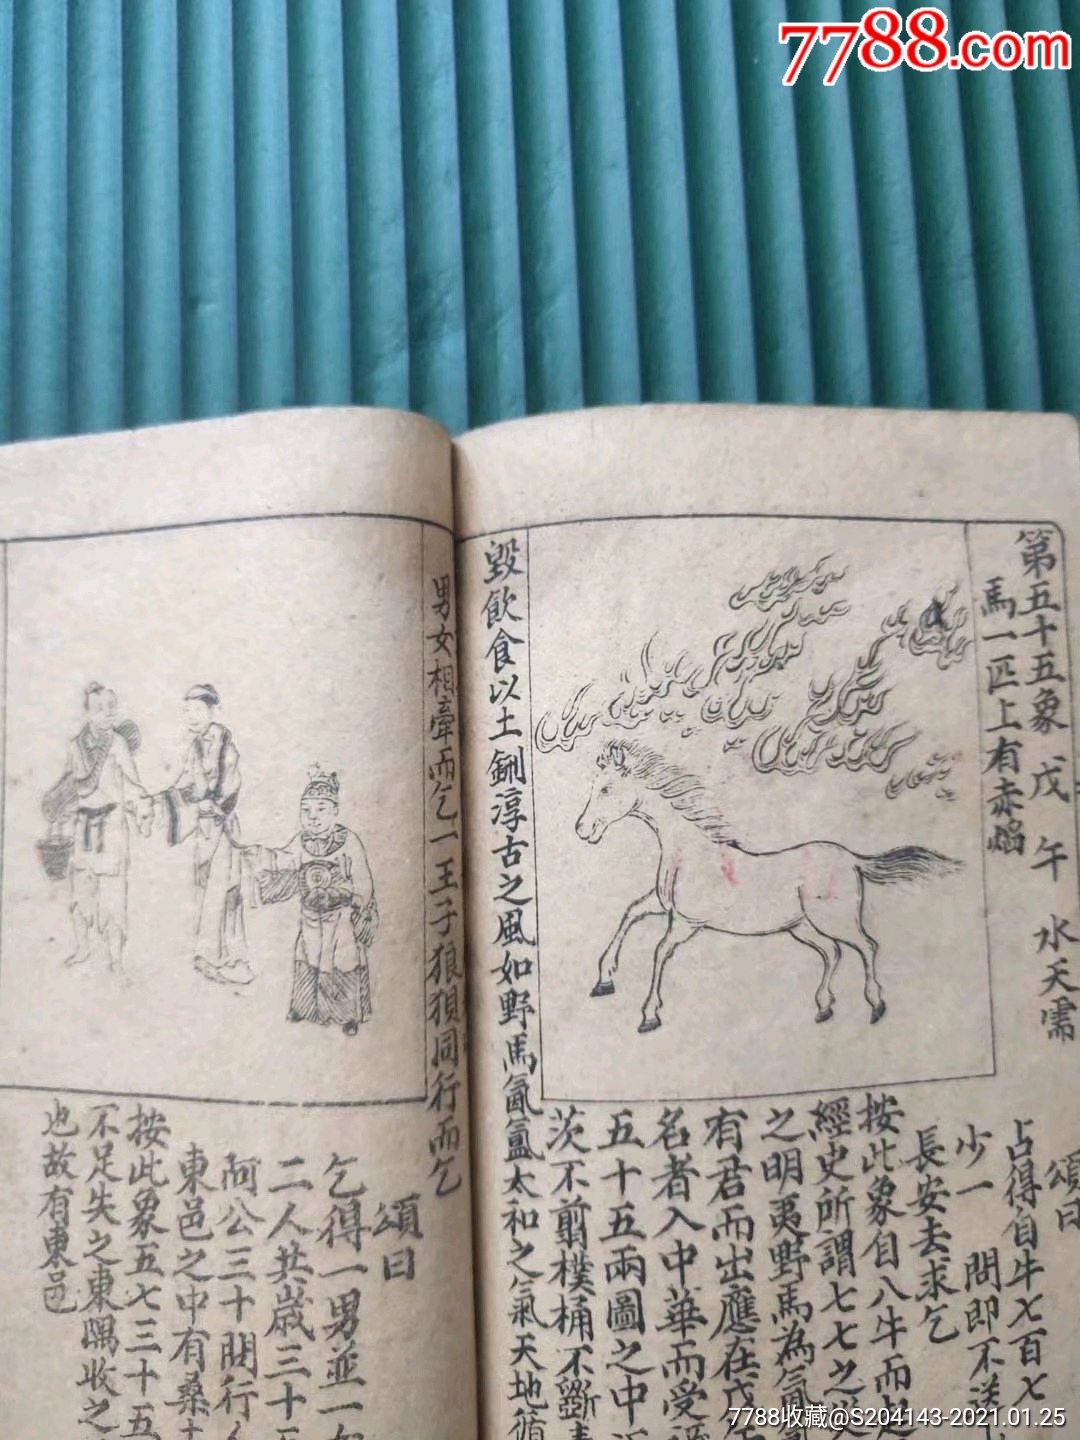 7788.com
第五十五象 戊午 水天需
馬一匹上有赤焰
頌曰
占得自牛七百七
少一 問即不
長安去求乞
按此象自八牛而
經史所謂七七之
之明夷野馬為氤
有君而出應在戊午
名者入中華而受
五十五兩圖之中
茨不剪樸桶不斷
毀飲食以土鉶淳古之風如野馬氤氳太和之氣天地循
男女相牽而乞一王子狼狽同行而乞
頌曰
乞得一男並一女
二人共歲三十五
阿公三十閒行
東邑之中有桑
按此象五七三十五
不足失之東隅收之
也故有東邑
7788收藏@S204143-2021.01.25